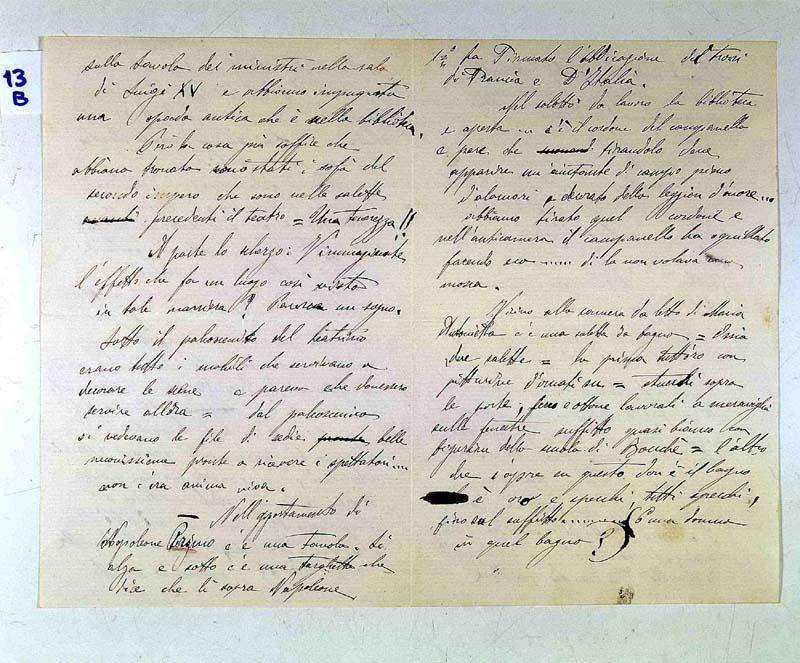 13
B
sulla tavola dei ministri nella sala
di Luigi XV e abbiamo impugnata
una spada antica che è nella biblioteca.
Però la cosa più soffice che
abbiamo trovato sono stati i sofà del
secondo impero che sono nelle salette
precedenti il teatro = Una tenerezza!!
A parte lo scherzo: V'immaginate
l'effetto che fa un luogo così visto
in tale maniera? Pareva un sogno.
Sotto il palcoscenico del teatrino
erano tutte i mobili che servivano a
decorare le scene e pareva che dovessero
servire allora = dal palcoscenico
si vedevano le file di sedie belle
nuovissime pronte a ricevere i spettatori....
non c'era anima viva.
Nell'appartamento di
Napoleone Primo c'è una tavola. Si
alza e sotto c'è una targhetta che
dice che lì sopra Napoleone
1º ha Firmato l'abdicazione dei troni
di Francia e D'Italia.
Nel salotto da lavoro la biblioteca
è aperta ... c'è il cordone del campanello
e pare che tirandolo deve
apparire un aiutante di campo pieno
d'alamari e decorato della legion d'onore...
abbiamo tirato quel cordone e
nell'anticamera il campanello ha squillato
facendo eco ..... di là non volava una
mosca.
Vicino alla camera da letto di Maria
Antonietta c'è una saletta da bagno = Ossia
due salette = la prima con
pitturine d'ornati su = stucchi sopra
le porte, ferro e ottone lavorati a meraviglia
sulle finestre soffitto quasi bianco con
figurine della scuola di Bouché = l'altra
che sopra su questo, dov'è il bagno
è oro e specchi, tutti specchi,
fino sul soffitto ........ (E una donna
in quel bagno?)